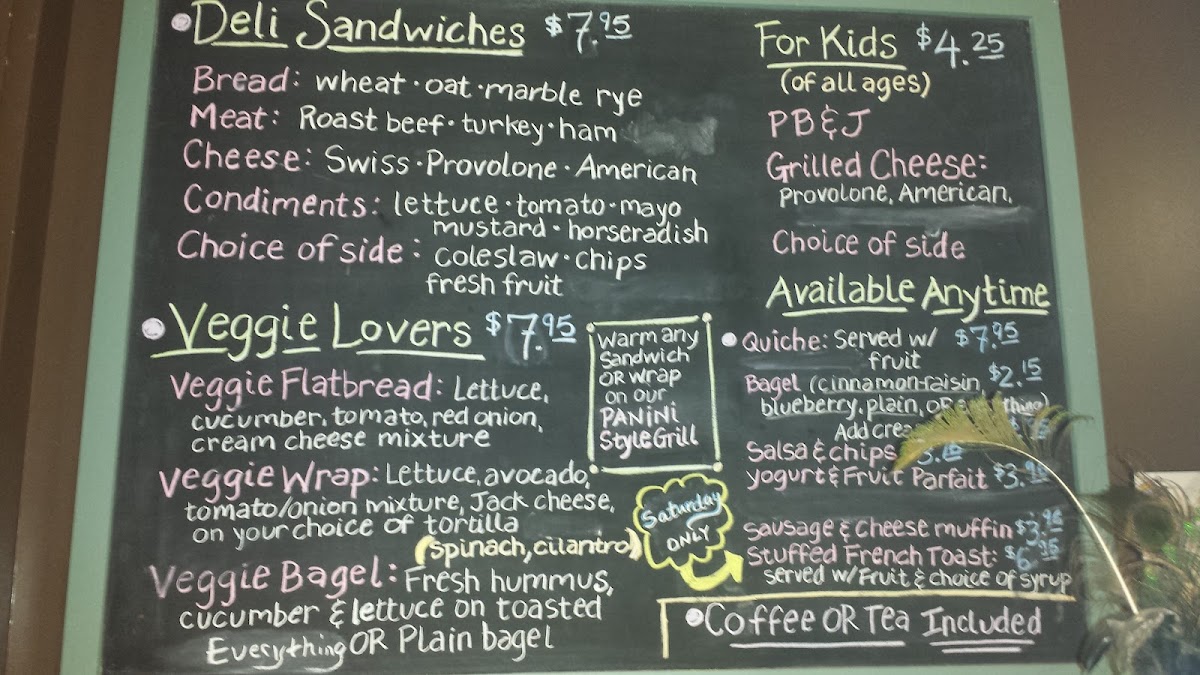 Deli Sandwiches $7.95
Bread: wheat · oat · marble rye
Meat: Roast beef · turkey · ham
Cheese: Swiss · Provolone · American
Condiments: lettuce · tomato · mayo
mustard · horseradish
Choice of side: coleslaw · chips
fresh fruit
Veggie Lovers $7.95
Veggie Flatbread: Lettuce,
cucumber, tomato, red onion,
cream cheese mixture
Veggie Wrap: Lettuce, avocado,
tomato/onion mixture, Jack cheese,
on your choice of tortilla
(spinach, cilantro)
Veggie Bagel: Fresh hummus,
cucumber & lettuce on toasted
Everything OR Plain bagel
Warm any
Sandwich
OR wrap
on our
PANINI
Style Grill
For Kids $4.25
(of all ages)
PB & J
Grilled Cheese:
Provolone, American,
Choice of side
Available Anytime
Quiche: Served w/ $7.95
fruit
Bagel (cinnamon-raisin, $2.15
blueberry, plain, OR
Add
Salsa & chips
yogurt & Fruit Parfait
Saturday
ONLY
Sausage & Cheese muffin
Stuffed French Toast: $6.95
served w/ Fruit & choice of syrup
Coffee OR Tea Included